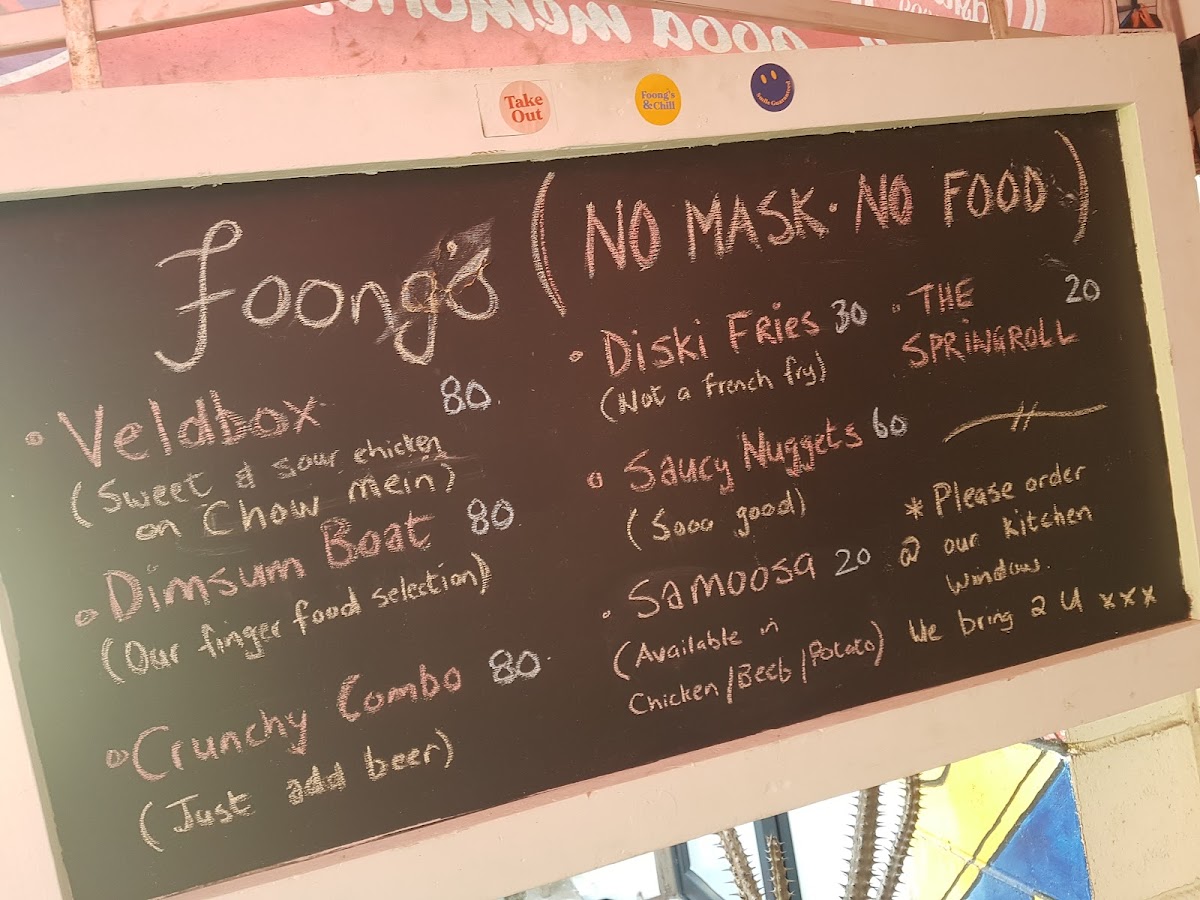 good memories
Take
Out
Foong's
& Chill
Smile Guaranteed
foongs
(NO MASK · NO FOOD)
• Veldbox 80
(Sweet & sour chicken
on Chow mein)
• Dimsum Boat 80
(Our finger food selection)
• Crunchy Combo 80
(Just add beer)
• Diski Fries 30
(Not a french fry)
• Saucy Nuggets 60
(Sooo good)
• Samoosa 20
(Available in
Chicken/Beef/Potato)
• THE 20
SPRINGROLL
* Please order
@ our kitchen
window.
We bring 2 U xxx